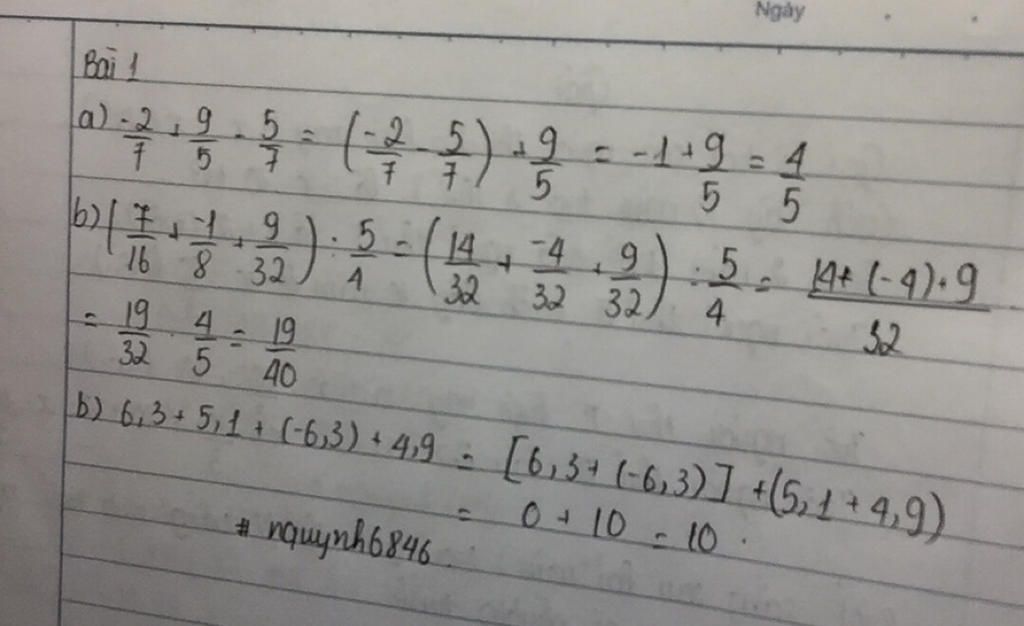 Ngày
Bài 1
a) -2/7 + 9/5 - 5/7 = (-2/7 - 5/7) + 9/5 = -1 + 9/5 = 4/5
b) (7/16 + -1/8 + 9/32) : 5/4 = (14/32 + -4/32 + 9/32) : 5/4 = 14 + (-4) + 9/32
= 19/32 . 4/5 = 19/40
b) 6,3 + 5,1 + (-6,3) + 4,9 = [6,3 + (-6,3)] + (5,1 + 4,9)
= 0 + 10 = 10.
# nquynh6846.